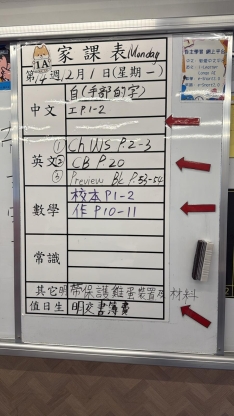 1A 家課表 Monday
第14週 12月1日(星期一)
中文 自(手部的字)
工P.1-2
英文 ① Ch WS P.2-3
② CB P.20
③ Preview Bk P.53-54
數學 校本P.1-2
作P.10-11
常識
其它 明帶保護雞蛋裝置及材料
值日生 明交書簿費